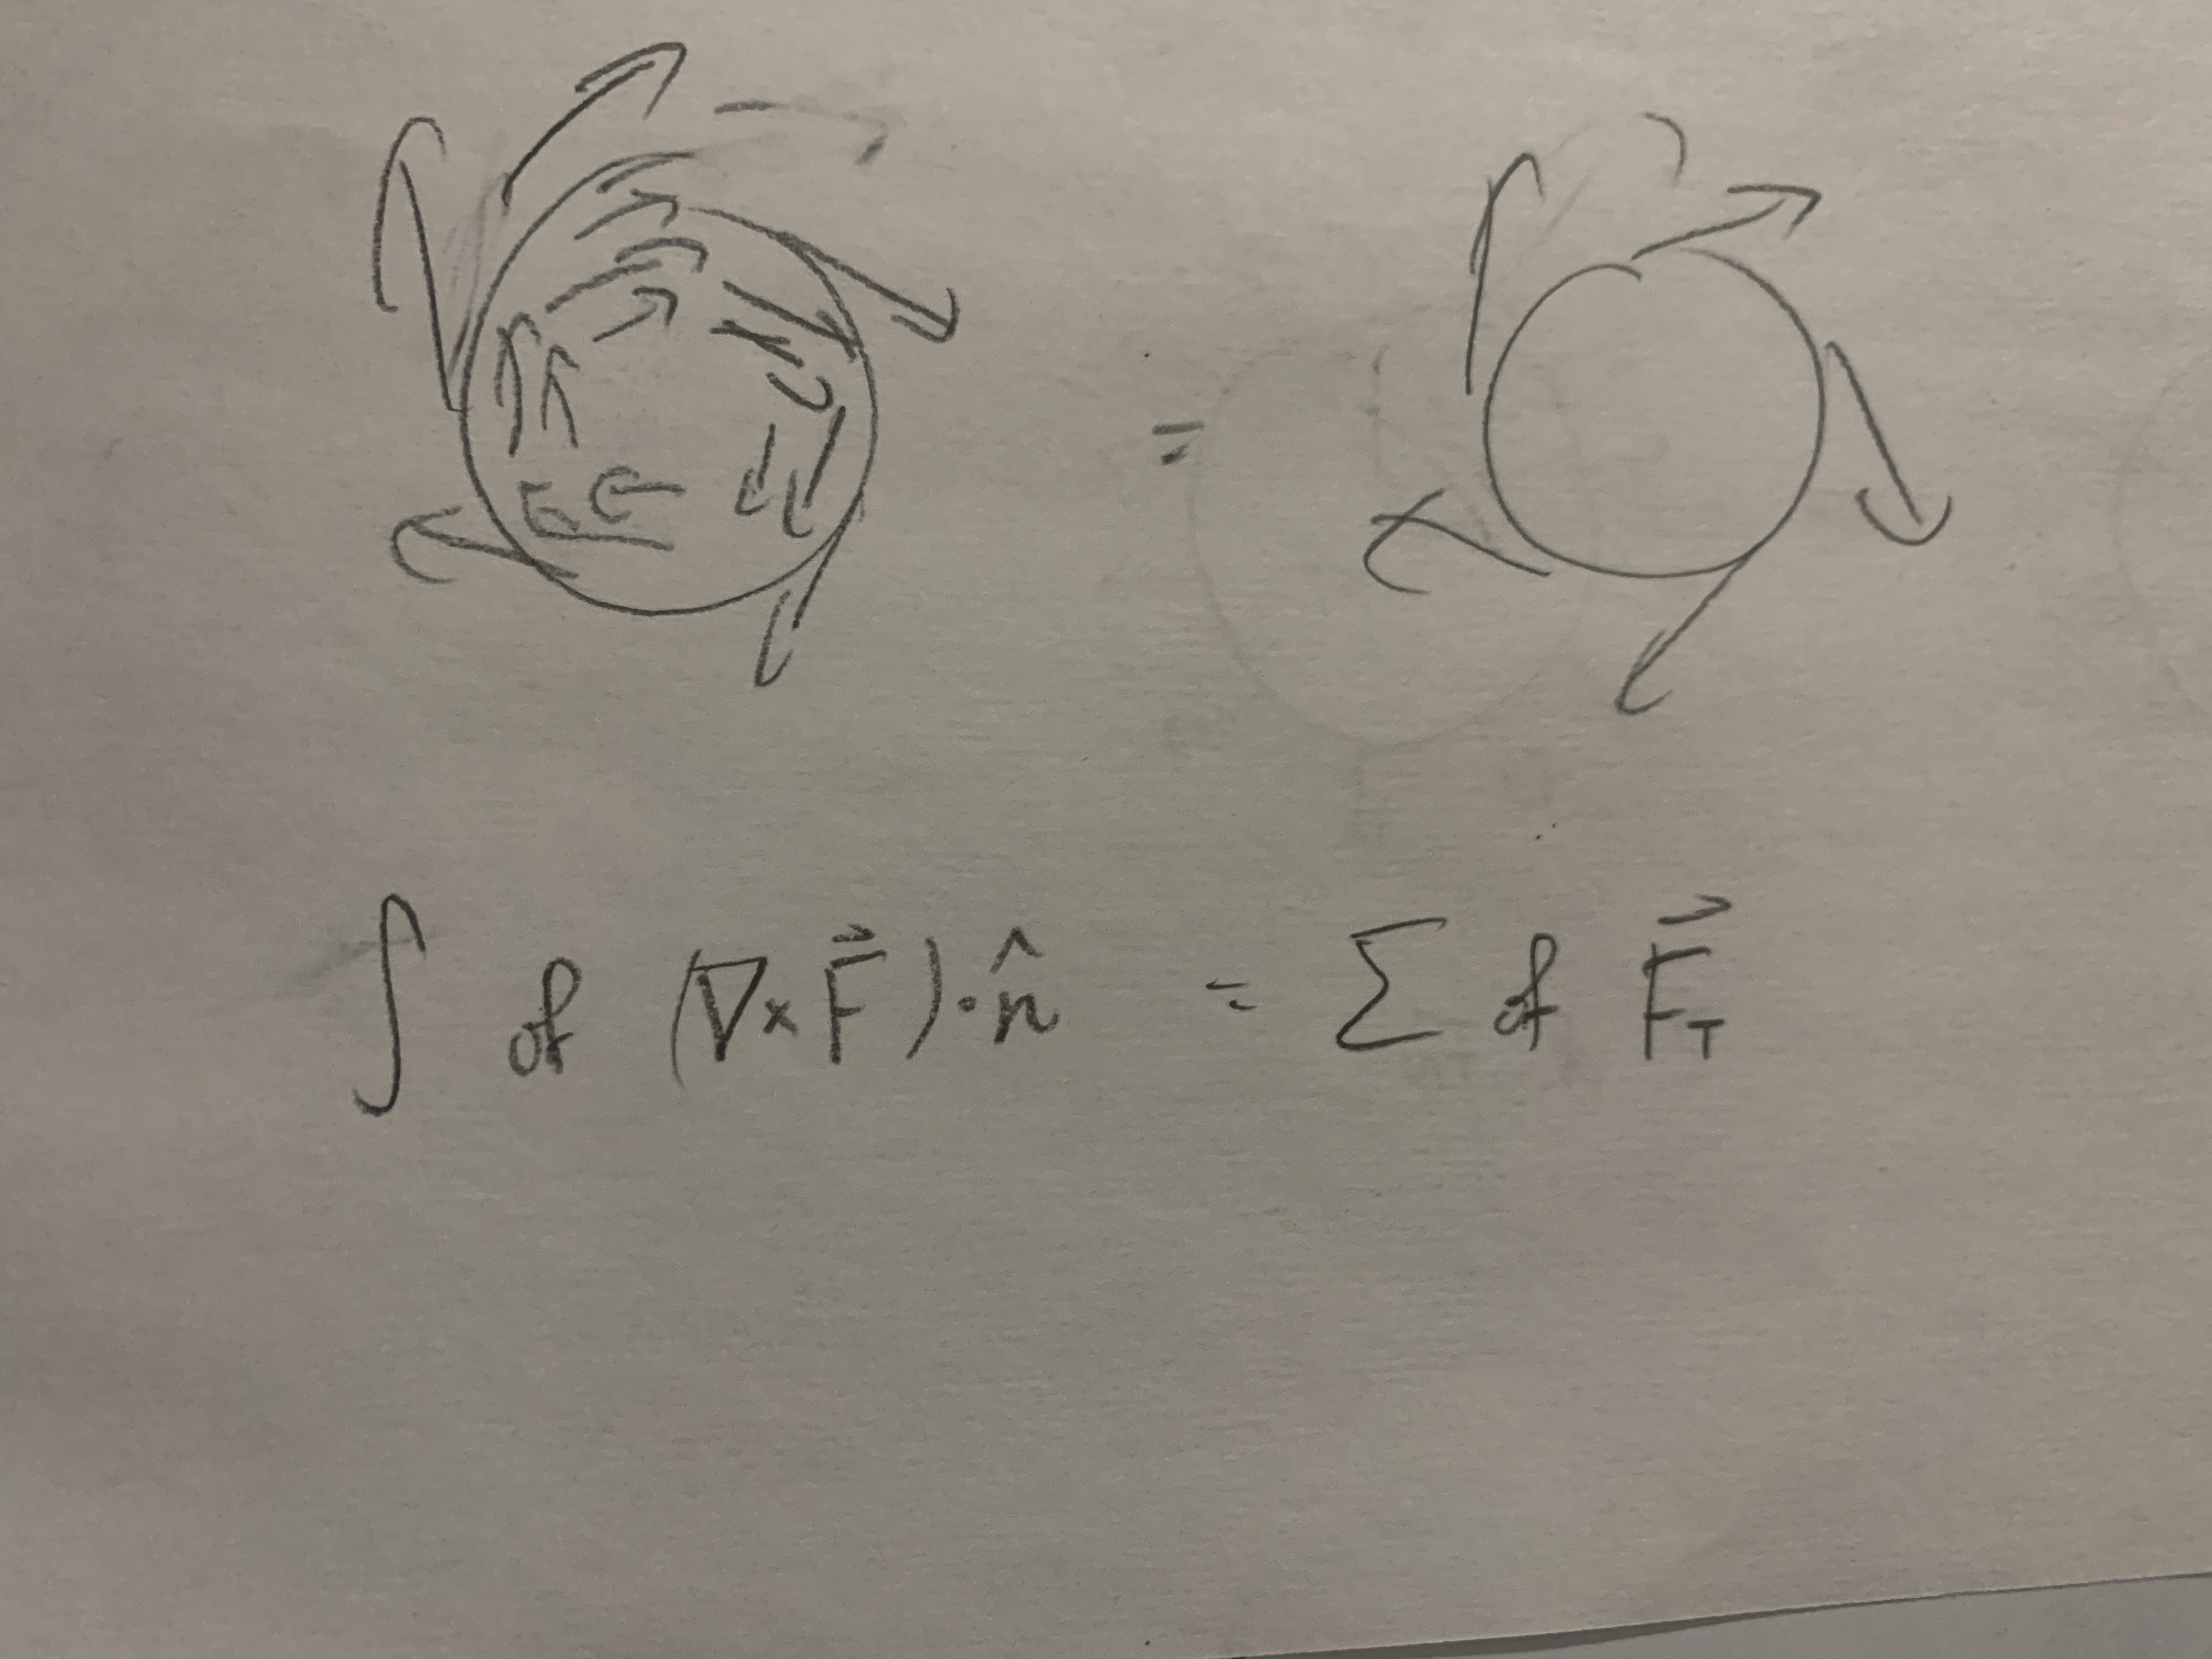 =
∫ of (∇×F⃗)·n̂ = Σ of F⃗_T